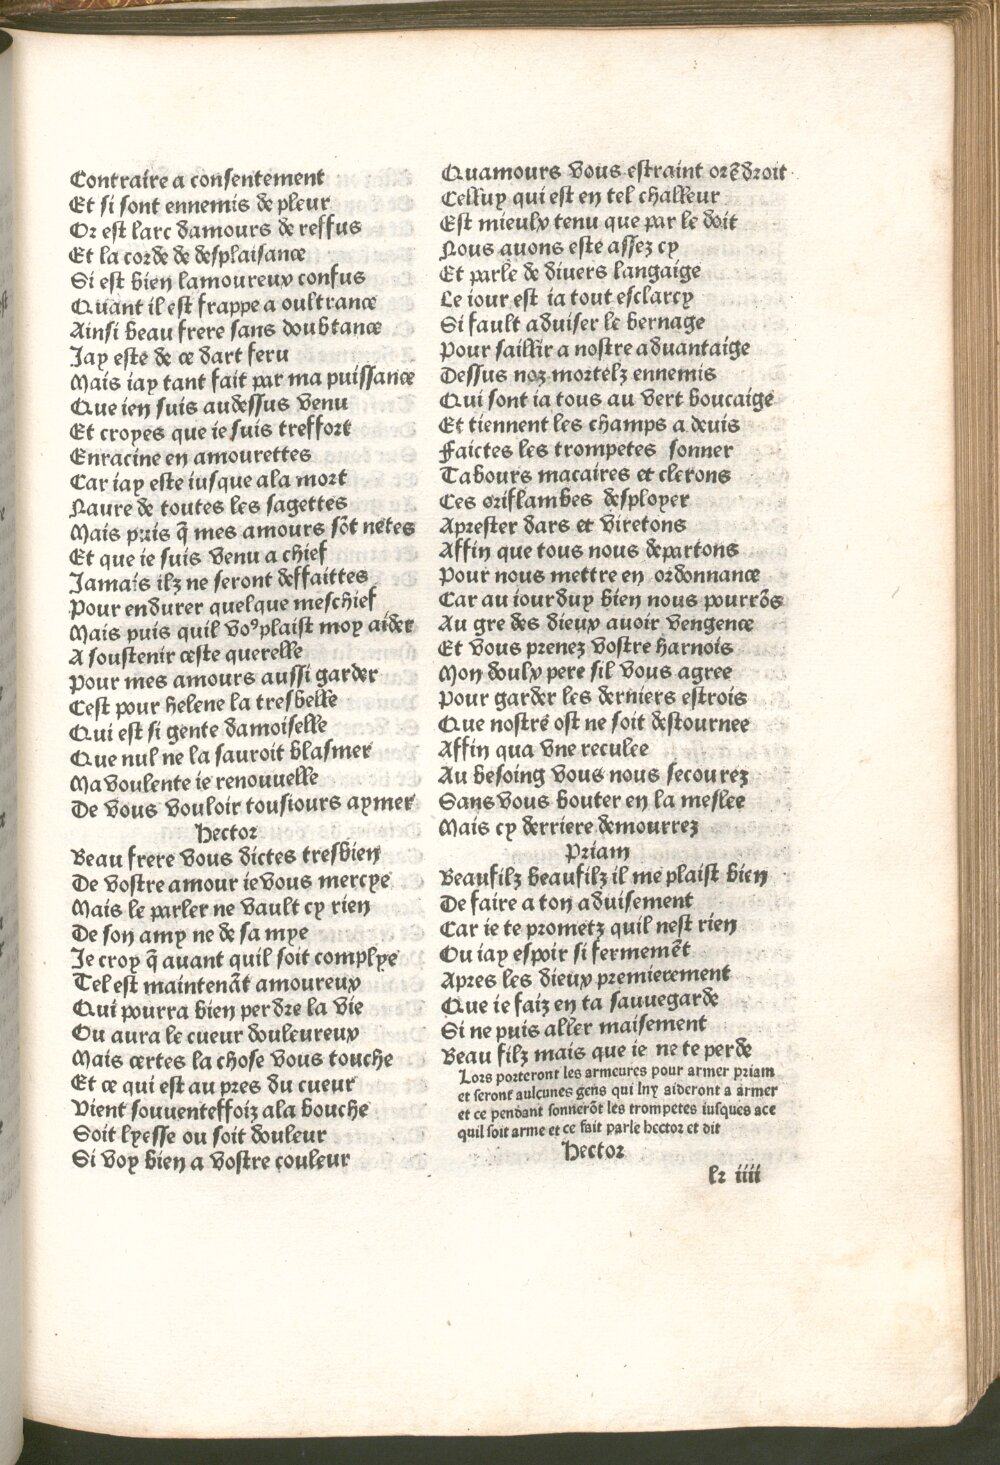 Contraire a consentement
Et si sont ennemis de pleur
Or est larc damours de reffus
Et la corde de desplaisance
Si est bien lamoureux confus
Quant il est frappe a oultrance
Ainsi beau frere sans doubtance
Jay este de ce dart feru
Mais iay tant fait par ma puissance
Que ien suis audessus venu
Et croyes que ie suis treffort
Enracine en amourettes
Car iay este iusque ala mort
Naure de toutes les sagettes
Mais puis q̃ mes amours sõt netes
Et que ie suis venu a chief
Jamais ilz ne seront deffaittes
Pour endurer quelque meschief
Mais puis quil voꝰ plaist moy aider
A soustenir ceste querelle
Pour mes amours aussi garder
Cest pour helene la tresbelle
Qui est si gente damoiselle
Que nul ne la sauroit blasmer
Ma voulente ie renouuelle
De vous vouloir tousiours aymer
Hector
Beau frere vous dictes tresbien
De vostre amour ie vous mercye
Mais le parler ne vault cy rien
De son amy ne de sa mye
Je croy q̃ auant quil soit complye
Tel est maintenãt amoureux
Qui pourra bien perdre la vie
Ou aura le cueur douleureux
Mais certes la chose vous touche
Et ce qui est au pres du cueur
Vient souuenteffoiz ala bouche
Soit lyesse ou soit douleur
Si voy bien a vostre couleur
Quamours vous estraint orẽdroit
Celluy qui est en tel challeur
Est mieulx tenu que par le doit
Nous auons este assez cy
Et parle de diuers langaige
Le iour est ia tout esclarcy
Si fault aduiser le bernage
Pour saillir a nostre aduantaige
Dessus noz mortelz ennemis
Qui sont ia tous au vert boucaige
Et tiennent les champs a deuis
Faictes les trompetes sonner
Tabours macaires et clerons
Ces oriflambes desployer
Aprester dars et viretons
Affin que tous nous departons
Pour nous mettre en ordonnance
Car au iourduy bien nous pourrõs
Au gre des dieux auoir vengence
Et vous prenez vostre harnois
Mon doulx pere sil vous agree
Pour garder les derniers estrois
Que nostre ost ne soit destournee
Affin qua vne reculee
Au besoing vous nous secourez
Sans vous bouter en la meslee
Mais cy derriere demourrez
Priam
Beaufilz beaufilz il me plaist bien
De faire a ton aduisement
Car ie te prometz quil nest rien
Ou iay espoir si fermemẽt
Apres les dieux premierement
Que ie faiz en ta sauuegarde
Si ne puis aller maisement
Beau filz mais que ie ne te perde
Lors porteront les armeures pour armer priam
et seront aulcunes gens qui luy aideront a armer
et ce pendant sonnerõt les trompetes iusques ace
quil soit arme et ce fait parle hector et dit
Hector
lr iiii